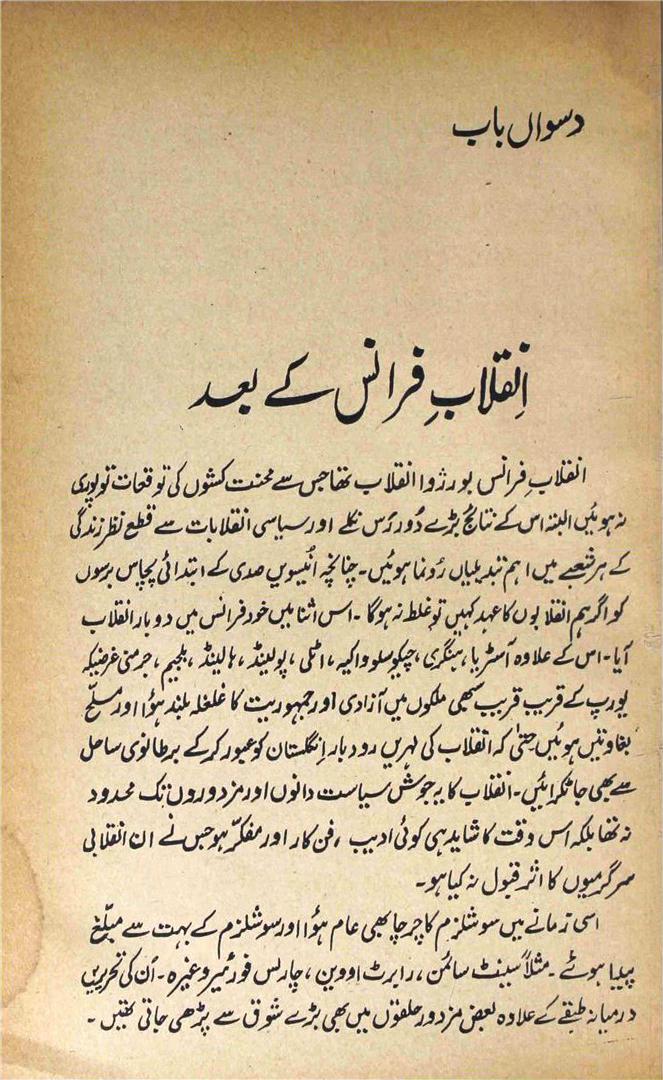 دسواں باب
اِنقلابِ فرانس کے بعد
انقلابِ فرانس بورژوا انقلاب تھا جس سے محنت کشوں کی توقعات تو پوری
نہ ہوئیں البتہ اس کے نتائج بڑے دُور رَس نکلے اور سیاسی انقلابات سے قطع نظر زندگی
کے ہر شعبے میں اہم تبدیلیاں رُونما ہوئیں۔ چنانچہ اُنیسویں صدی کے ابتدائی پچاس برسوں
کو اگر ہم انقلابوں کا عہد کہیں تو غلط نہ ہوگا۔ اس اثنا میں خود فرانس میں دو بار انقلاب
آیا۔ اس کے علاوہ آسٹریا، ہنگری، چیکوسلوواکیہ، اٹلی، پولینڈ، ہالینڈ، بلجیم، جرمنی غرضیکہ
یورپ کے قریب قریب سبھی ملکوں میں آزادی اور جمہوریت کا غلغلہ بلند ہؤا اور مسلّح
بغاوتیں ہوئیں حتیٰ کہ انقلاب کی لہریں رودبار اِنگلستان کو عبور کر کے برطانوی ساحل
سے بھی جا ٹکرائیں۔ انقلاب کا یہ جوش سیاست دانوں اور مزدوروں تک محدود
نہ تھا بلکہ اس وقت کا شاید ہی کوئی ادیب، فن کار اور مفکّر ہو جس نے ان انقلابی
سرگرمیوں کا اثر قبول نہ کیا ہو۔
اسی زمانے میں سوشلزم کا چرچا بھی عام ہؤا اور سوشلزم کے بہت سے مبلّغ
پیدا ہوئے۔ مثلاً سینٹ سائمن، رابرٹ اووین، چارلس فورئیر وغیرہ۔ اُن کی تحریریں
درمیانہ طبقے کے علاوہ بعض مزدور حلقوں میں بھی بڑے شوق سے پڑھی جاتی تھیں۔